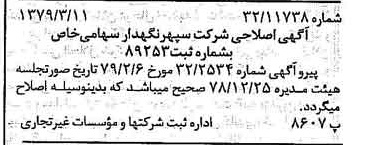 شماره ۳۲/۱۱۷۳۸ ۱۳۷۹/۳/۱۱
آگهی اصلاحی شرکت سپهرنگهدار سهامی‌خاص
بشماره ثبت۸۹۲۵۳
پیرو آگهی شماره ۳۲/۲۵۳۴ مورخ ۷۹/۲/۶ تاریخ صورتجلسه
هیئت مدیره ۷۸/۱۲/۲۵ صحیح میباشد که بدینوسیله اصلاح
میگردد.
پ ۸۶۰۷ اداره ثبت شرکتها و مؤسسات غیرتجاری